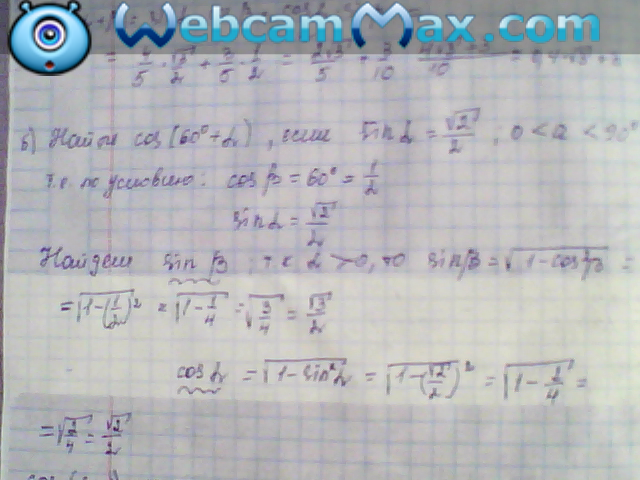 WebcamMax.com
= 4/5 · √3/2 + 3/5 · 1/2 =
б) Найти cos(60° + α), если sin α = √2/2; 0 < α < 90°
т.к. по условию: cos β = 60° = 1/2
sin α = √2/2
Найдем sin β; т.к α > 0, то sin β = √1 - cos²β =
= √1-(1/2)² = √1 - 1/4 = √3/4 = √3/2
cos α = √1 - sin²α = √1-(√2/2)² = √1 - 2/4 =
= √2/4 = √2/2